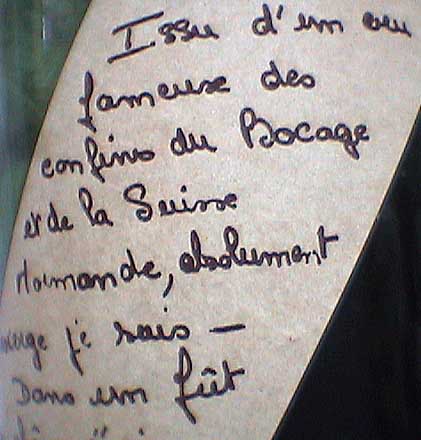 Issu d'un cru
fameuse des
confins du Bocage
et de la Suisse
Normande, absolument
vierge je suis —
Dans un fût